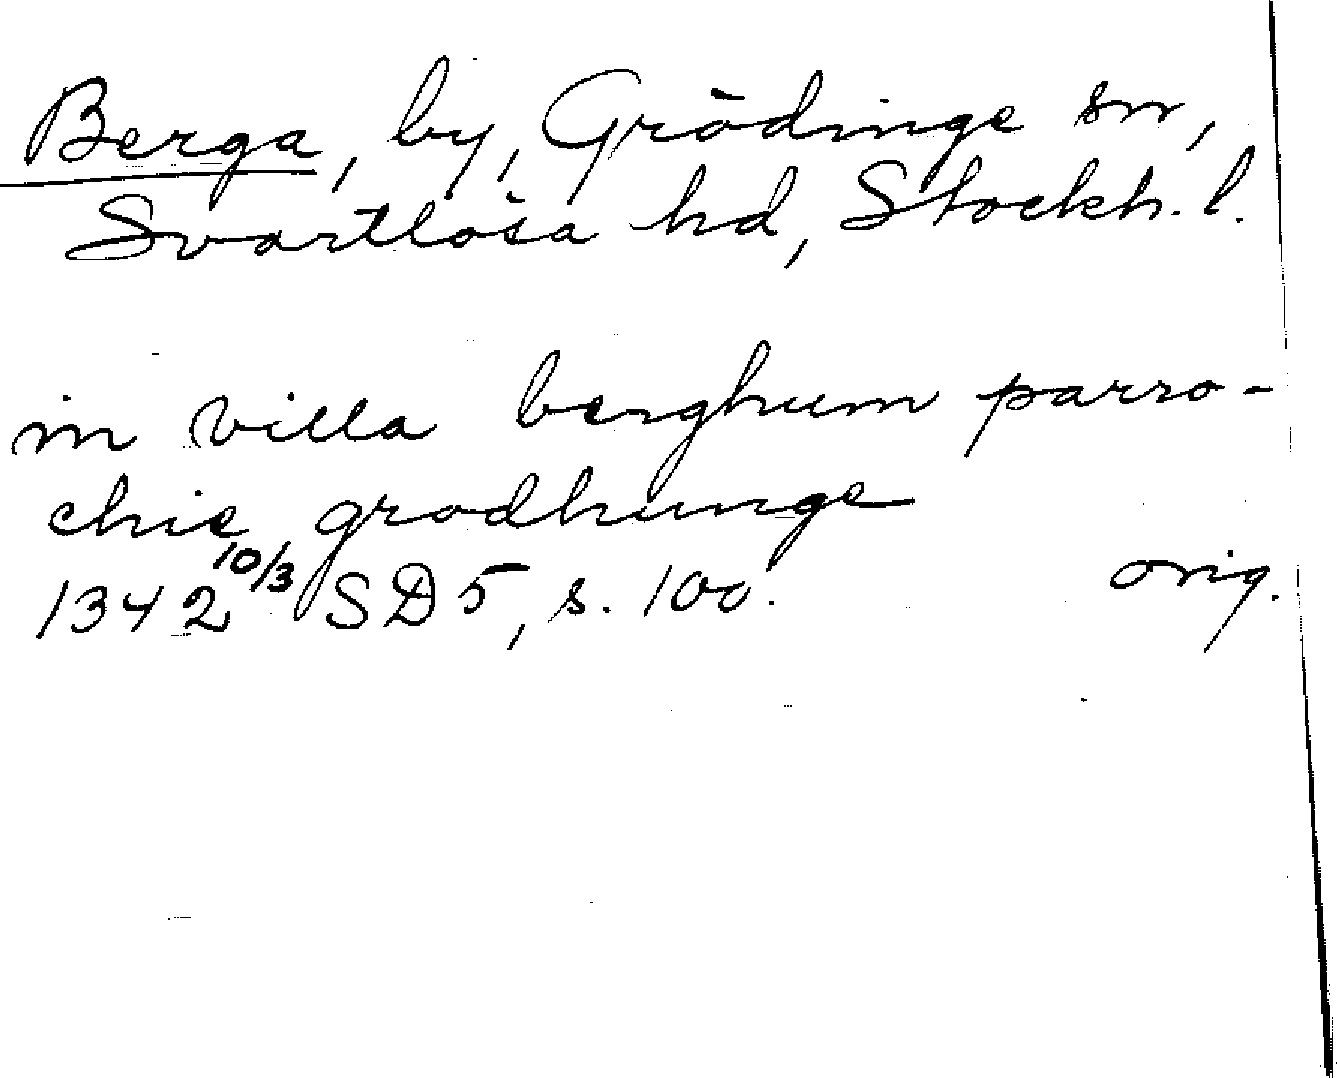 Berga, by, Grödinge sn,
Svartlösa hd, Stockh. l.
in villa berghum parro-
chie grodhunge
1342 10/3 SD 5, s. 100. orig.